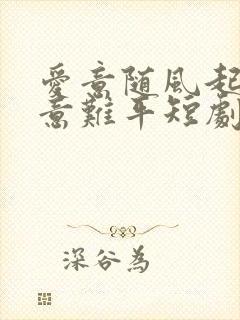 愛意随風起
意難平短劇
深谷為